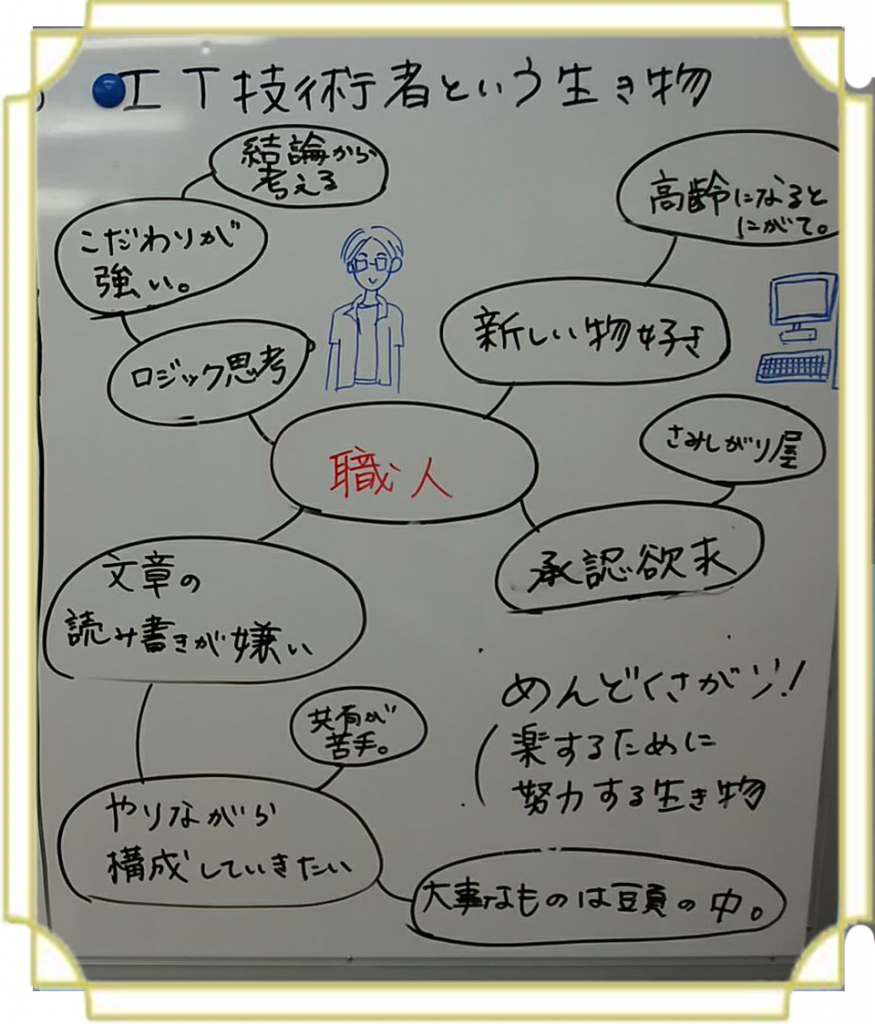 IT技術者という生き物
結論から
考える
こだわりが
強い。
ロジック思考
高齢になると
にがて。
新しい物好き
職人
さみしがり屋
承認欲求
文章の
読み書きが嫌い
共有が
苦手。
やりながら
構成していきたい
大事なものは頭の中。
めんどくさがり!
楽するために
努力する生き物